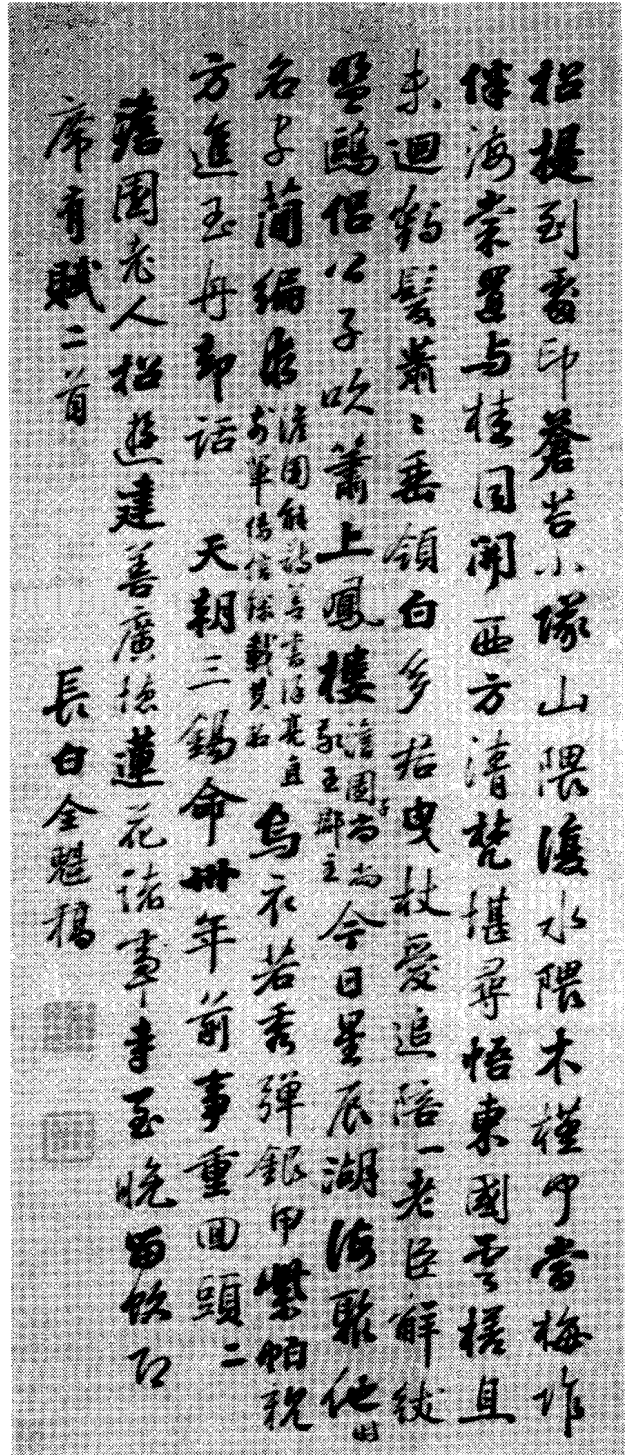 招提到處印蒼苔小隊山隈復水隈木槿中當梅作
伴海棠置与桂同開西方清梵堪尋悟東國雲槎且
未迴鶴髮蕭〻垂領白多君曳杖愛追陪一老臣解紱
盟鷗侶公子吹簫上鳳樓澹園子尚尚敬王郡主今日星辰湖海聚他時
名字簡編留澹園能詩善書淂亮直前輩傳信錄載其名烏衣若秀彈銀甲紫帕親
方進玉舟却話天朝三錫命卌年前事重回頭二
澹園老人招遊建善廣德蓮花諸寺率至晚留飲即
席有賦二首
長白全魁稿